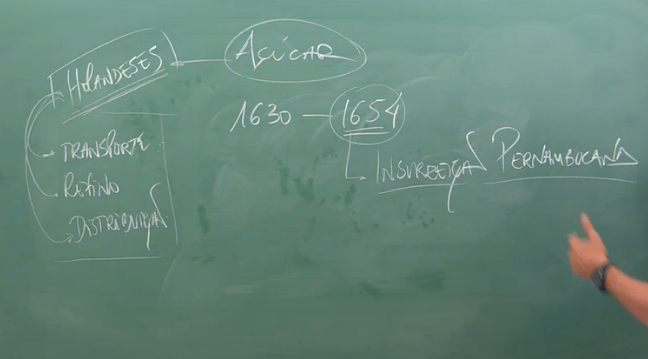 AÇÚCAR
HOLANDESES
1630 — 1654
TRANSPORTE
REFINO
DISTRIBUIÇÃO
INSURREIÇÃO PERNAMBUCANA